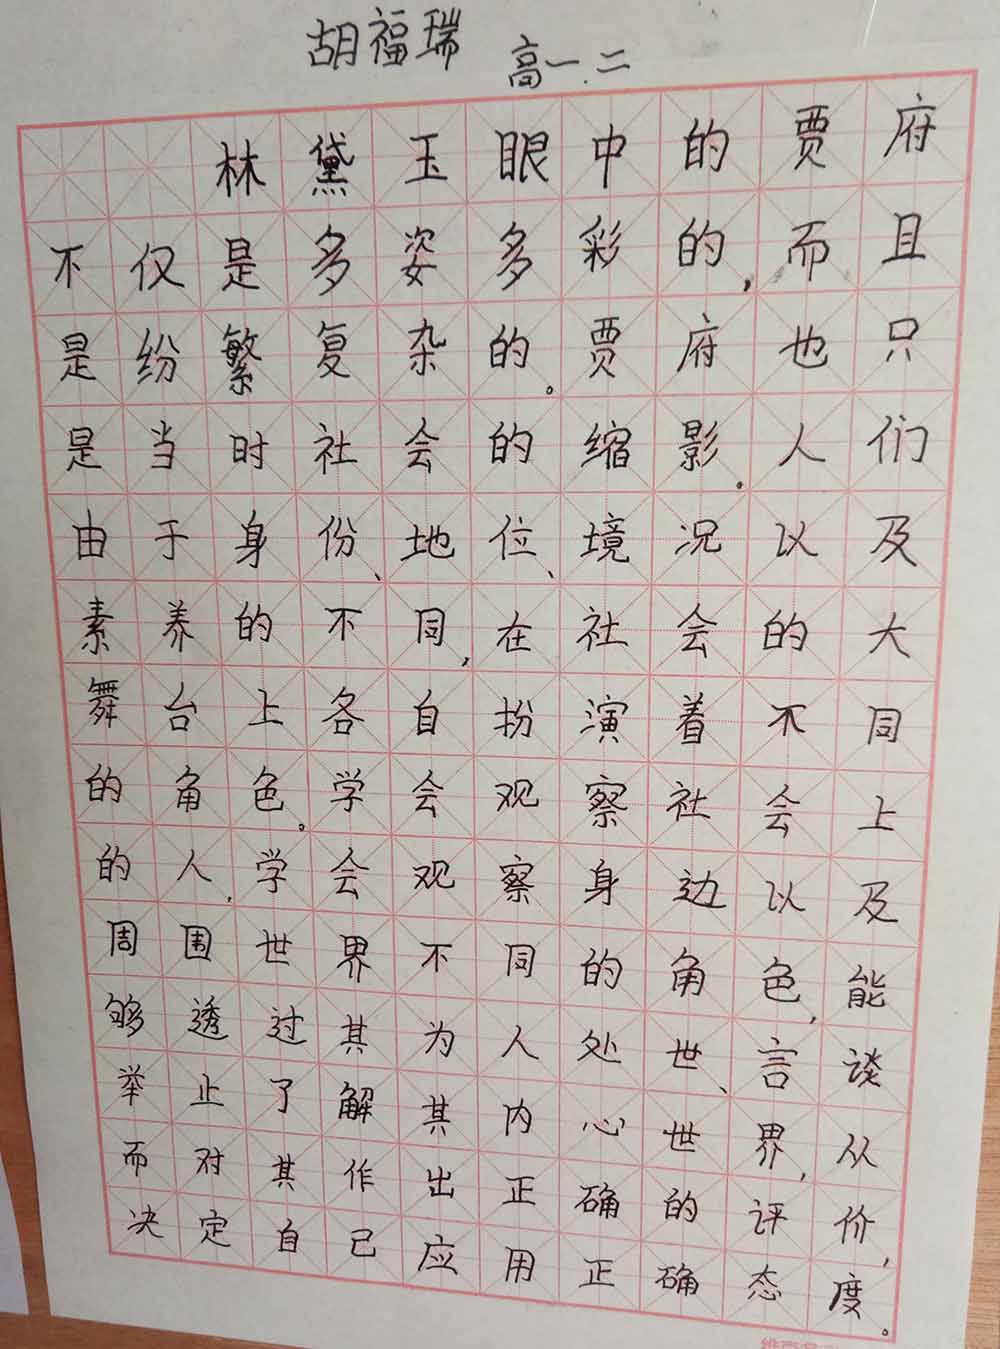 胡福瑞 高一.二
林黛玉眼中的贾府
不仅是多姿多彩的,而且
是纷繁复杂的。贾府也只
是当时社会的缩影。人们
由于身份、地位、境况以及
素养的不同,在社会的大
舞台上各自扮演着不同
的角色。学会观察社会上
的人,学会观察身边以及
周围世界不同的角色,能
够透过其为人处世、言谈
举止了解其内心世界,从
而对其作出正确的评价,
决定自己应用正确态度。